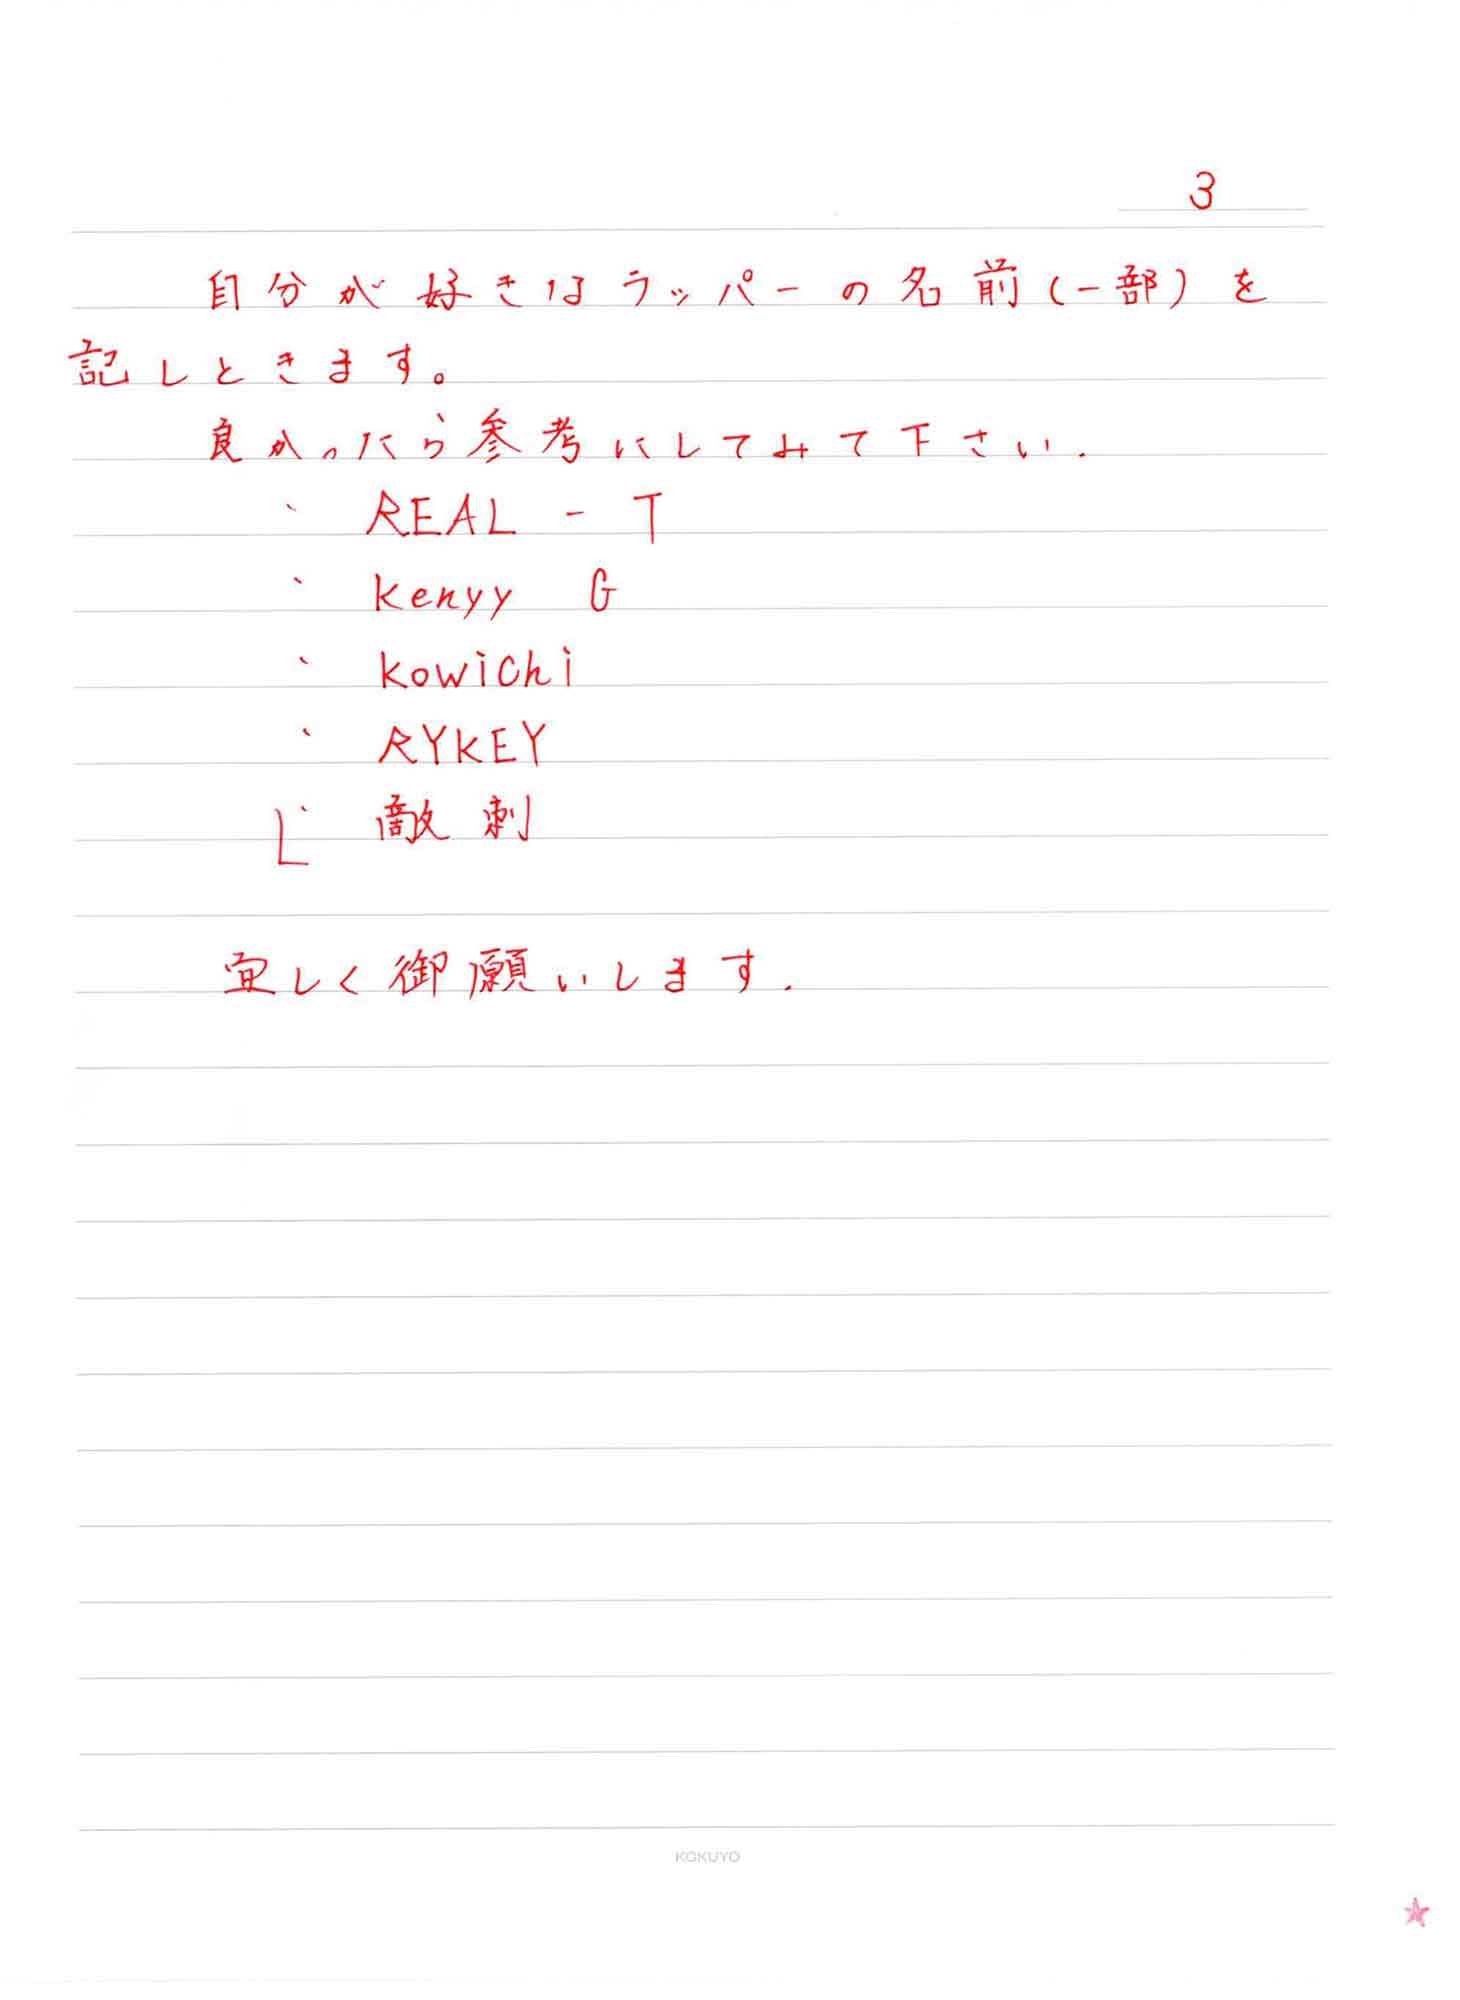 3
自分が好きなラッパーの名前(一部)を
記しときます。
良かったら参考にしてみて下さい.
・ REAL - T
・ Kenyy G
・ KowiChi
・ RYKEY
・ 敵刺
宜しく御願いします.
KOKUYO